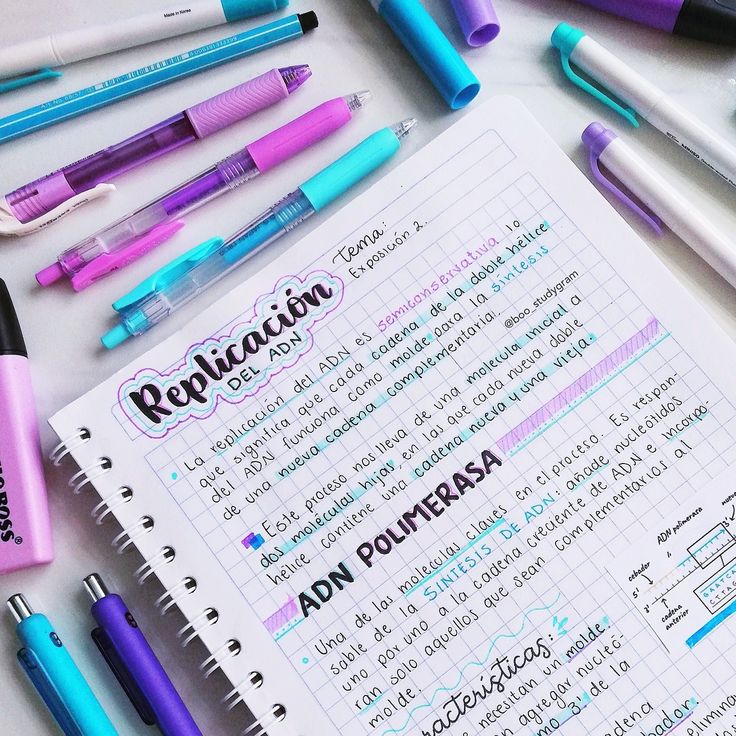 Made in Korea
Tema:
Exposición 2.
Replicación
DEL ADN
La replicación del ADN es semiconservativa lo
que significa que cada cadena de la doble hélice
del ADN funciona como molde para la síntesis
de una nueva cadena complementaria.
@boo_studygram
Este proceso nos lleva de una molécula inicial a
dos moléculas hijas, en las que cada nueva doble
hélice contiene una cadena nueva y una vieja.
ADN POLIMERASA
Una de las moléculas claves en el proceso. Es respon-
sable de la SÍNTESIS DE ADN: añade nucleótidos
uno por uno a la cadena creciente de ADN e incorpo-
ran solo aquellos que sean complementarios al
molde.
ADN polimerasa
cebador
5'
3'
cadena
anterior
aracterísticas:
necesitan un molde.
agregar nucleó-
3' de la
cadena
ebador
eliminan
BOSS